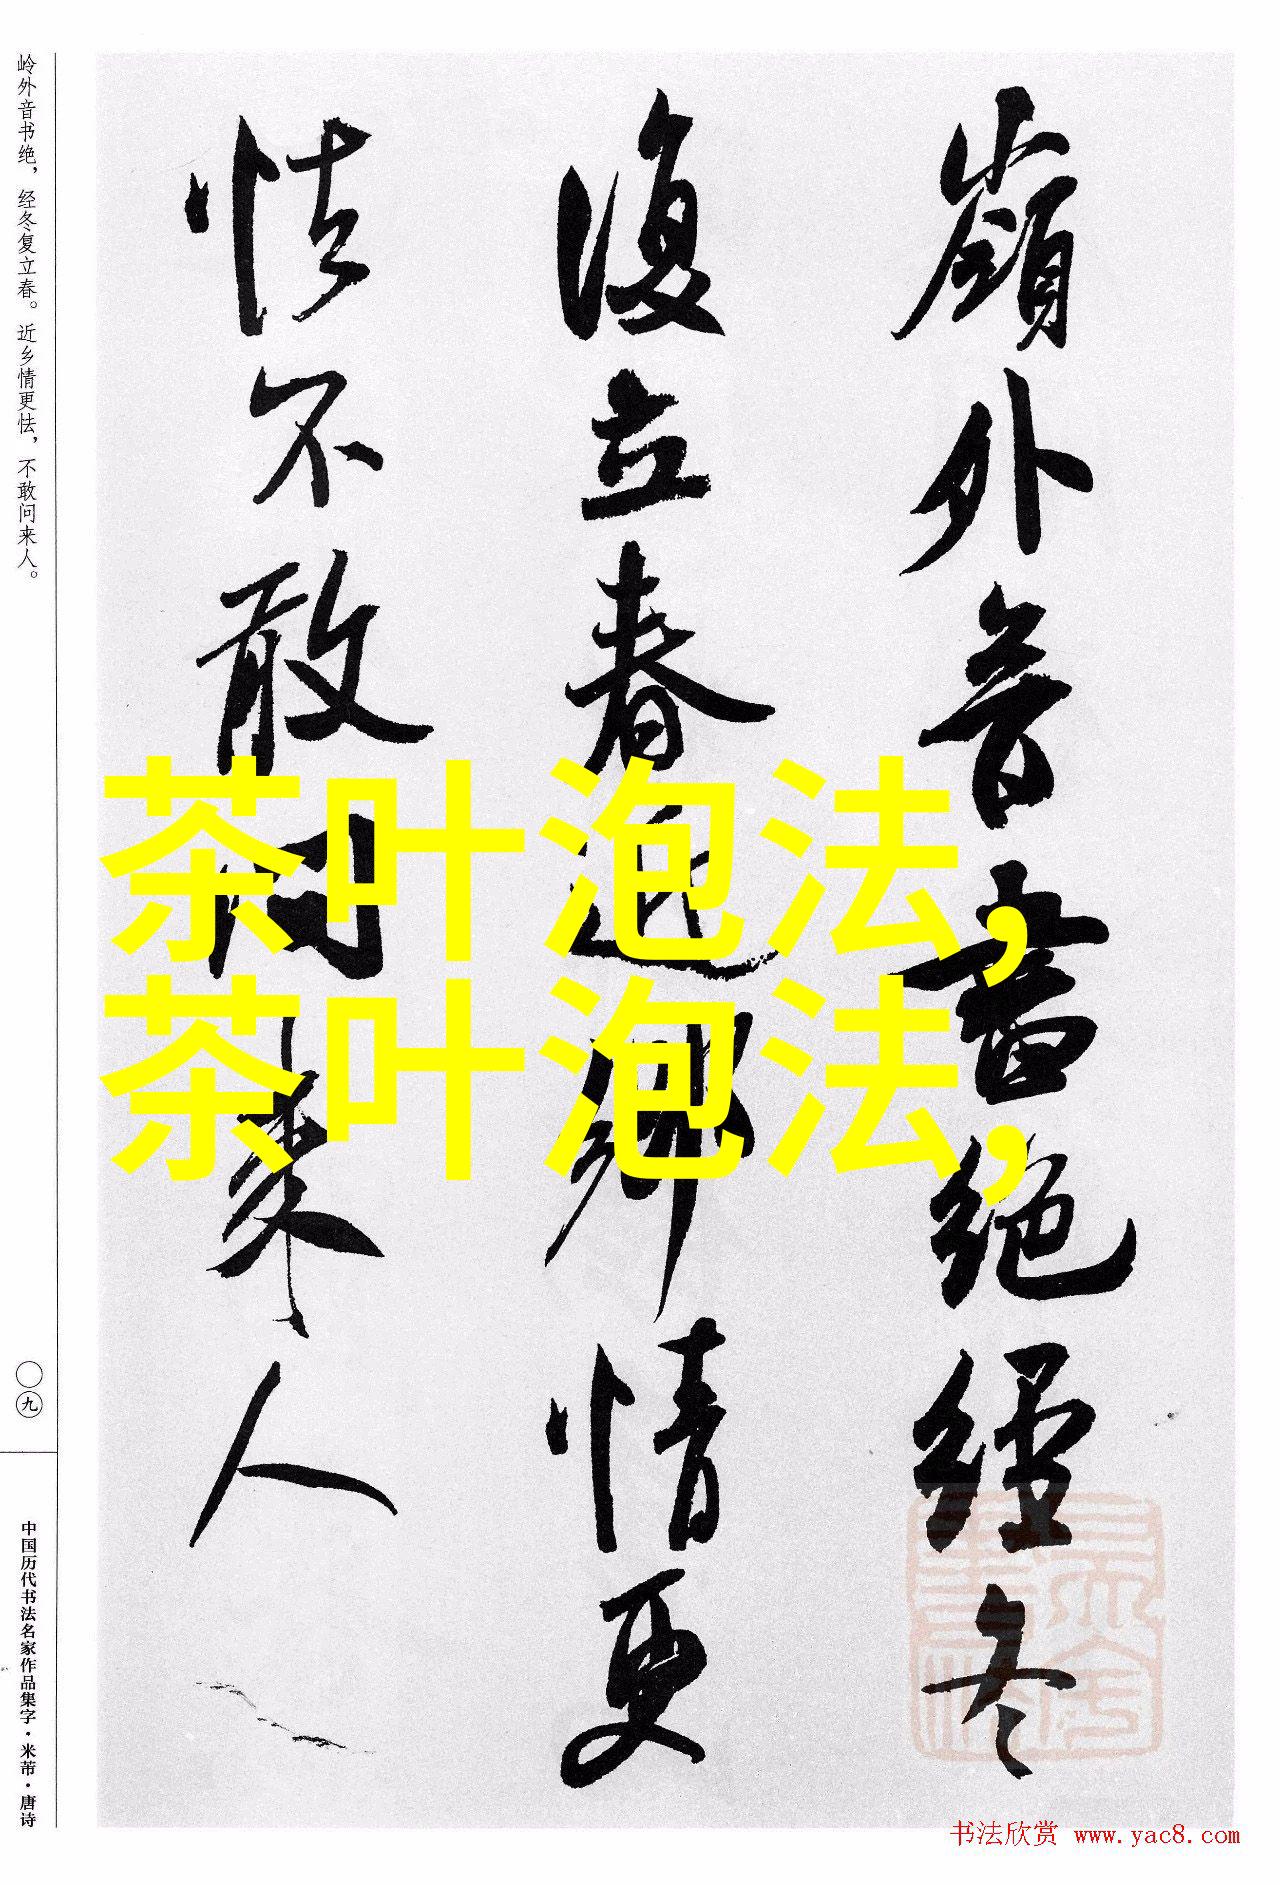 嶺外音書絕經冬
復立春近鄉情更
怯不敢問來人
岭外音书绝，经冬复立春。近乡情更怯，不敢问来人。
〇九
中国历代书法名家作品集字·米芾·唐诗
茶叶泡法,
茶叶泡法,
书法欣赏 www.yac8.com